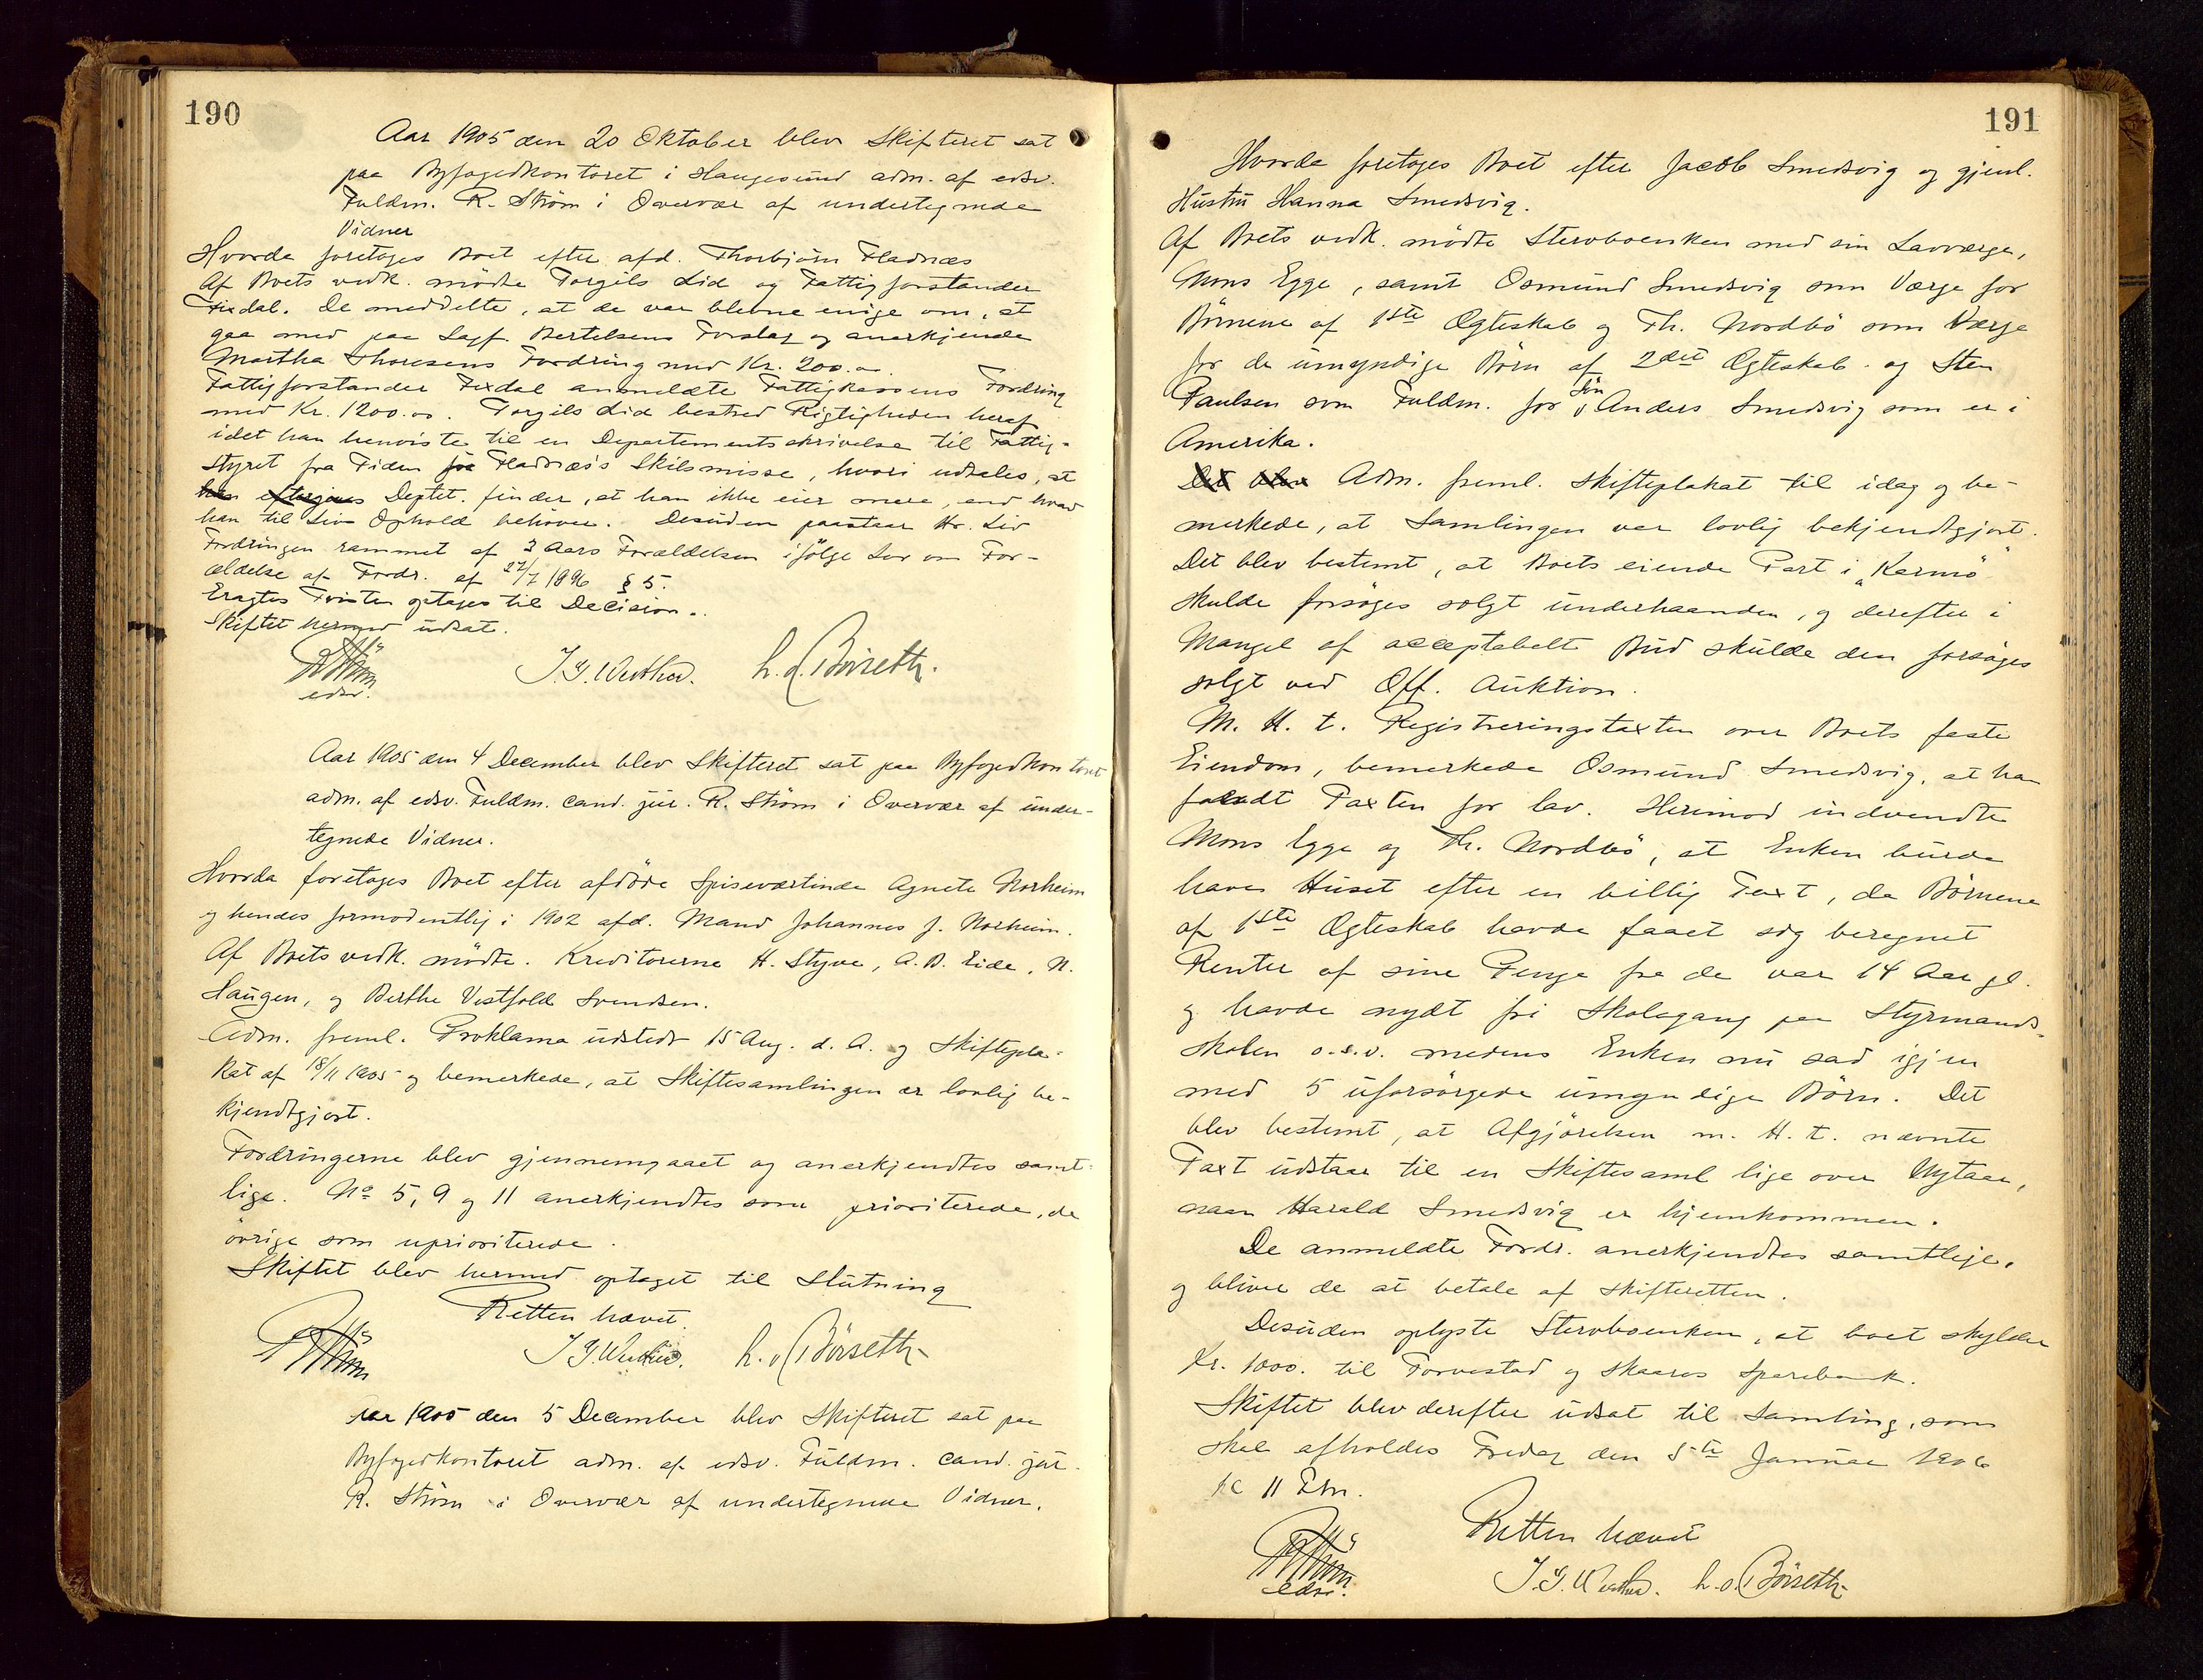 190
Aar 1905 den 20 Oktober blev Skifteret sat
paa Byfogedkontoret i Haugesund adm. af edsv.
Fuldm. R. Strøm i Overvær af undertegnede
Vidner
Hvorda foretoges Boet efter afd. Thorbjørn Fladnæs
Af Boets vedk. mødte Torgils Lid og Fattigforstander
Fixdal. De meddelte, at de var blevne enige om, at
gaa med paa Sagf. Bertelsens Forslag og anerkjende
Martha Thoresens Fordring med Kr. 200.00.
Fattigforstander Fixdal anmeldte Fattigkassens Fordring
med Kr. 1200.00. Torgils Lid bestred Rigtigheden heraf
idet han henviste til en Departementsskrivelse til Fattig-
styret fra Tiden fra Fladnæs's Skilsmisse, hvori udtales, at
han Deptet. finder, at han ikke eier mere, end hvad
han til Livs Ophold behøver. Desuden paastaar Hr. Lid
Fordringen rammet af 3 Aars Forældelsen ifølge Lov om For-
ældelse af Fordr. af 27/7 1896 § 5.
Eragtes Tvisten optages til Decision.
Skiftet hermed udsat.
RStrøm
edsv.
J. G. Wuthad. h. d. Börseth.
Aar 1905 den 4 December blev Skifteret sat paa Byfogedkontoret
adm. af edsv. Fuldm. cand. jur. R. Strøm i Overvær af under-
tegnede Vidner.
Hvorda foretoges Boet efter afdöde Spiseværtinde Agnete Norheim
og hendes formodentlig i 1902 afd. Mand Johannes J. Norheim.
Af Boets vedk. mödte. Kreditorerne H. Styve, A. B. Eide, N.
Haugen, og Berthe Vestfold Svendsen.
Adm. freml. Proklama udstedt 15 Aug. d. A. og Skiftepla-
kat af 18/11 1905 og bemerkede, at Skiftesamlingen er lovlig be-
kjendtgjort.
Fordringerne blev gjennemgaaet og anerkjendtes samt-
lige. No 5, 9 og 11 anerkjendtes som prioriterede, de
övrige som uprioriterede.
Skiftet blev hermed optaget til Slutning
Retten hævet.
RStrøm J G. h. d. Börseth
Aar 1905 den 5 December blev Skifteret sat paa
Byfogedkontoret adm. af edsv. Fuldm. cand. jur.
R. Strøm i Overvær af undertegnede Vidner.
191
Hvorda foretoges Boet efter Jacob Smedsvig og gjenl.
Hustru Hanna Smedsvig.
Af Boets vedk. mödte Stervboenken med sin Lavværge,
Mons Egge, samt Osmund Smedsvig som Værge for
Börnene af 1ste Ægteskab og Th. Nordbö som Værge
for de umyndige Börn af 2det Ægteskab. og Sten
Paulsen som Fuldm. for Sön Anders Smedsvig som er i
Amerika.
Det blev Adm. freml. Skifteplakat til idag og be-
merkede, at Samlingen var lovlig bekjendtgjort.
Det blev bestemt, at Boets eiende Part i "Karmö"
skulde forsöges solgt underhaanden, og derefter i
Mangel af acceptabelt Bud skulde den forsöges
solgt ved Off. Auktion.
M. H. t. Registreringstaxten over Boets faste
Eiendom, bemerkede Osmund Smedsvig, at han
fandt Taxten for lav. Herimod indvendte
Mons Egge og Th. Nordbö, at Enken burde
have Huset efter en billig Taxt, da Börnene
af 1ste Ægteskab havde faaet sig beregnet
Renter af sine Penge fra de var 14 Aar gl.
og havde nydt fri Skolegang paa Styrmands-
skolen o.s.v. medens Enken nu sad igjen
med 5 uforsörgede umyndige Börn. Det
blev bestemt, at Afgjörelsen m. H. t. nævnte
Taxt udstaar til en Skiftesaml lige over Nytaar,
naar Harald Smedsvig er hjemkommen.
De anmeldte Fordr. anerkjendtes samtlige,
og bliver de at betale af Skifteretten.
Desuden oplyste Stervboenken, at boet skylder
Kr. 1000. til Torvestad og Skaares Sparebank.
Skiftet blev derefter udsat til Samling, som
skal afholdes Fredag den 5te Januar 1906
kl 11 Fm.
Retten hævet
RStrøm
edsv.
J. G. h. d. Börseth